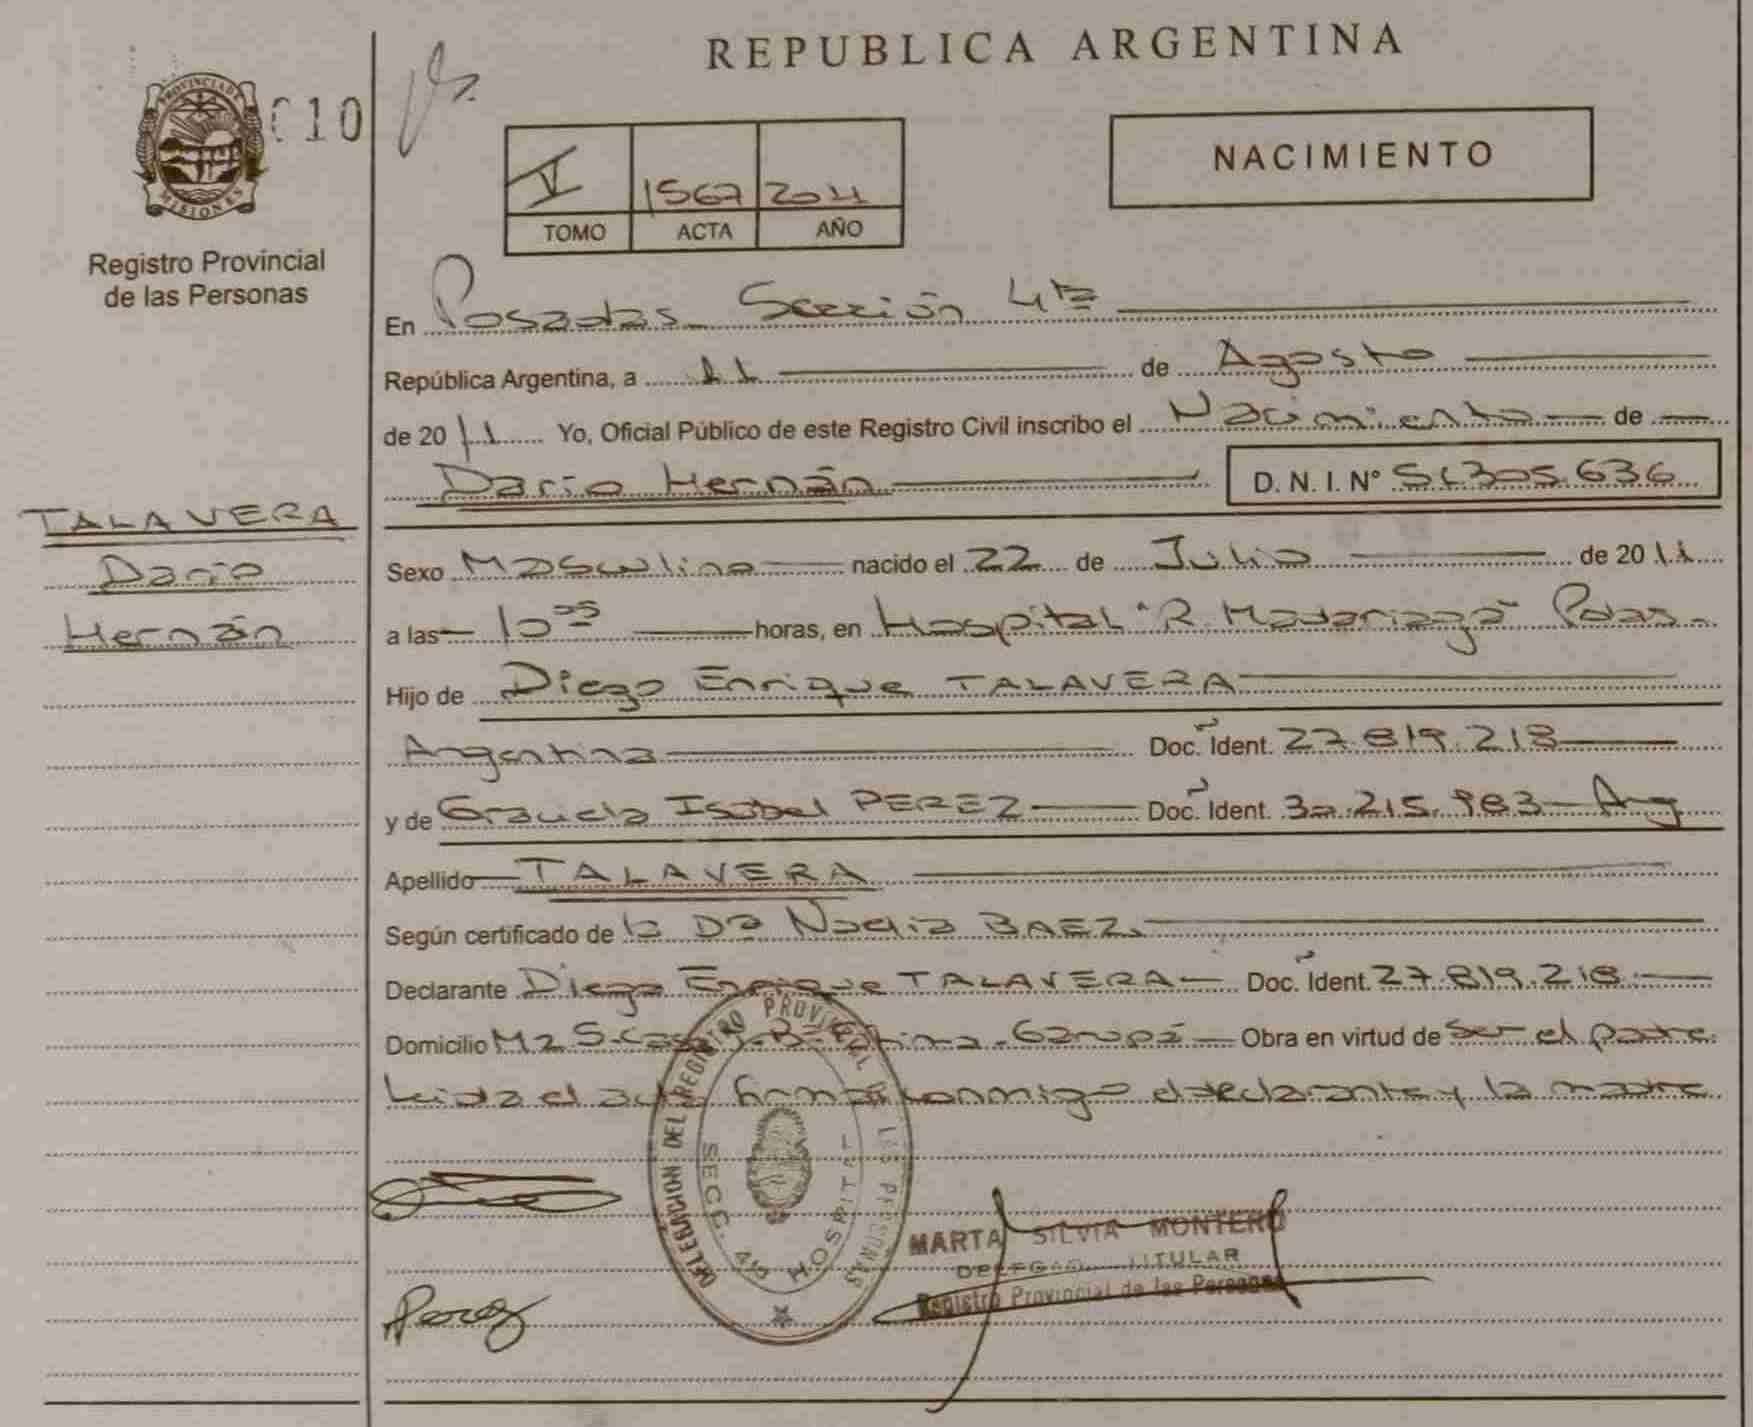 REPUBLICA ARGENTINA
PROVINCIA DE MISIONES
010
Registro Provincial
de las Personas
V 1567 2011
TOMO ACTA AÑO
NACIMIENTO
En Posadas Sección 4ta
República Argentina, a 11 de Agosto
de 2011 Yo, Oficial Público de este Registro Civil inscribo el Nacimiento de
Dario Hernán D. N. I. Nº 51.305.636
TALAVERA
Dario
Hernán
Sexo Masculino nacido el 22 de Julio de 2011
a las 10 horas, en Hospital "R. Madariaga" Pdas.
Hijo de Diego Enrique TALAVERA
Argentina Doc. Ident. 27.819.218
y de Graciela Isabel PEREZ Doc. Ident. 30.215.983 Arg
Apellido TALAVERA
Según certificado de la Dra Noelia BAEZ.
Declarante Diego Enrique TALAVERA Doc. Ident. 27.819.218
Domicilio Mz S. Garupá Obra en virtud de ser el padre
Leida el acta firman conmigo el declarante y la madre
DELEGACION DEL REGISTRO PROVINCIAL DE LAS PERSONAS
SECC. 4ta HOSPITAL
MARTA SILVIA MONTERO
DELEGADA TITULAR
Registro Provincial de las Personas
Perez